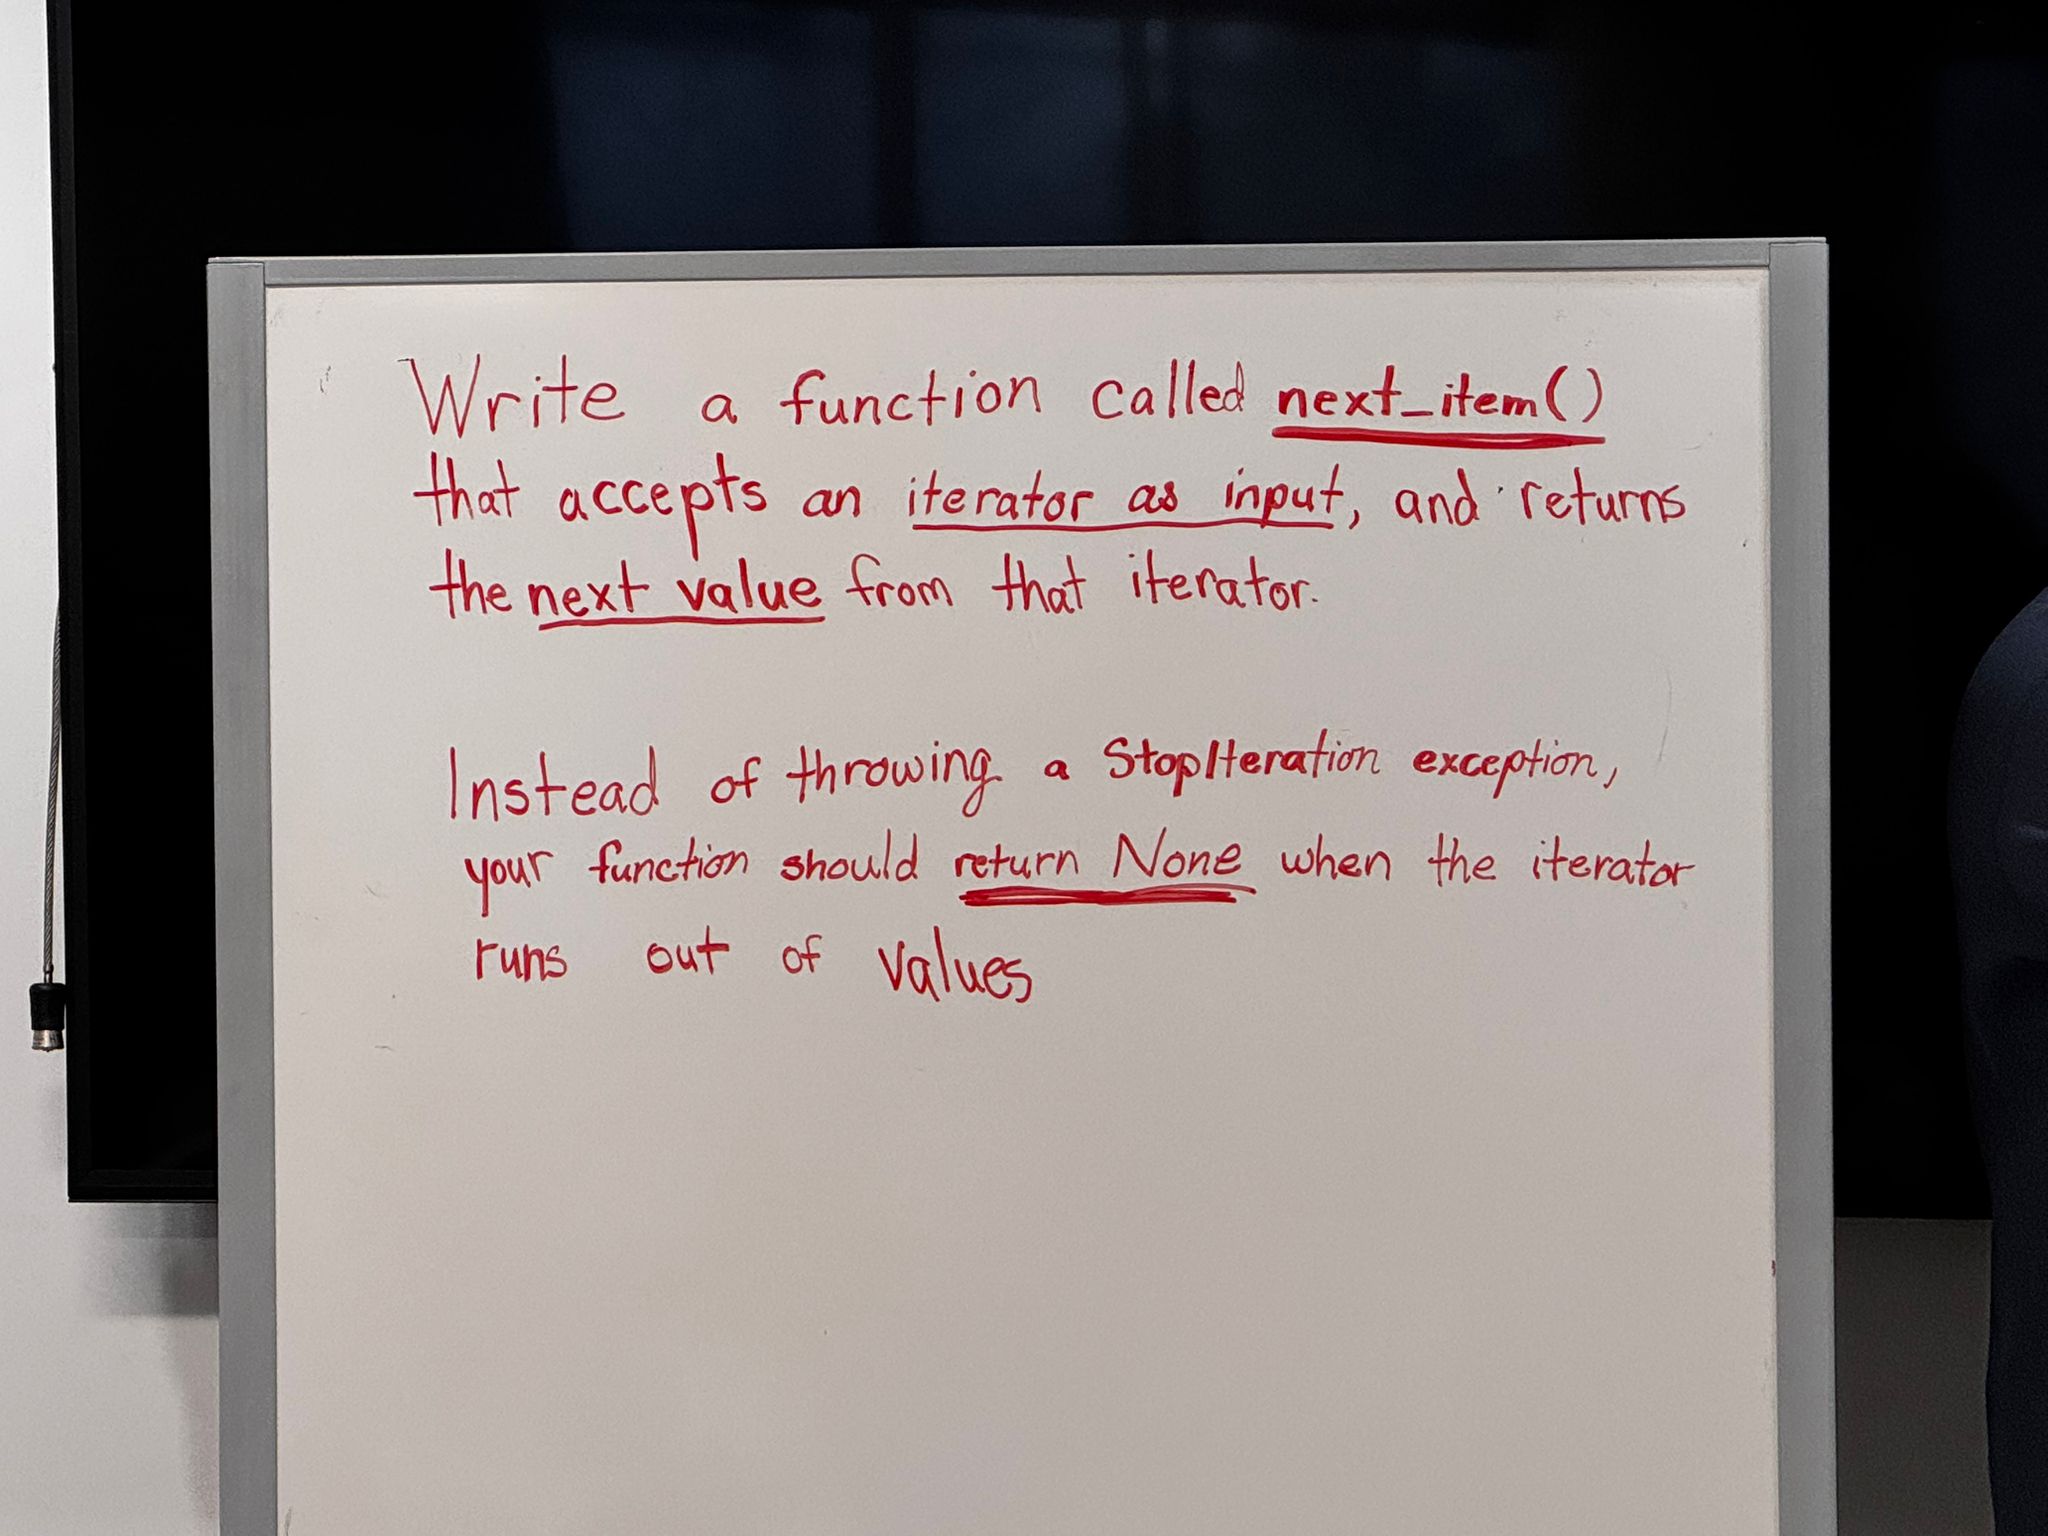 Write a function called next_item()
that accepts an iterator as input, and returns
the next value from that iterator.
Instead of throwing a StopIteration exception,
your function should return None when the iterator
runs out of values